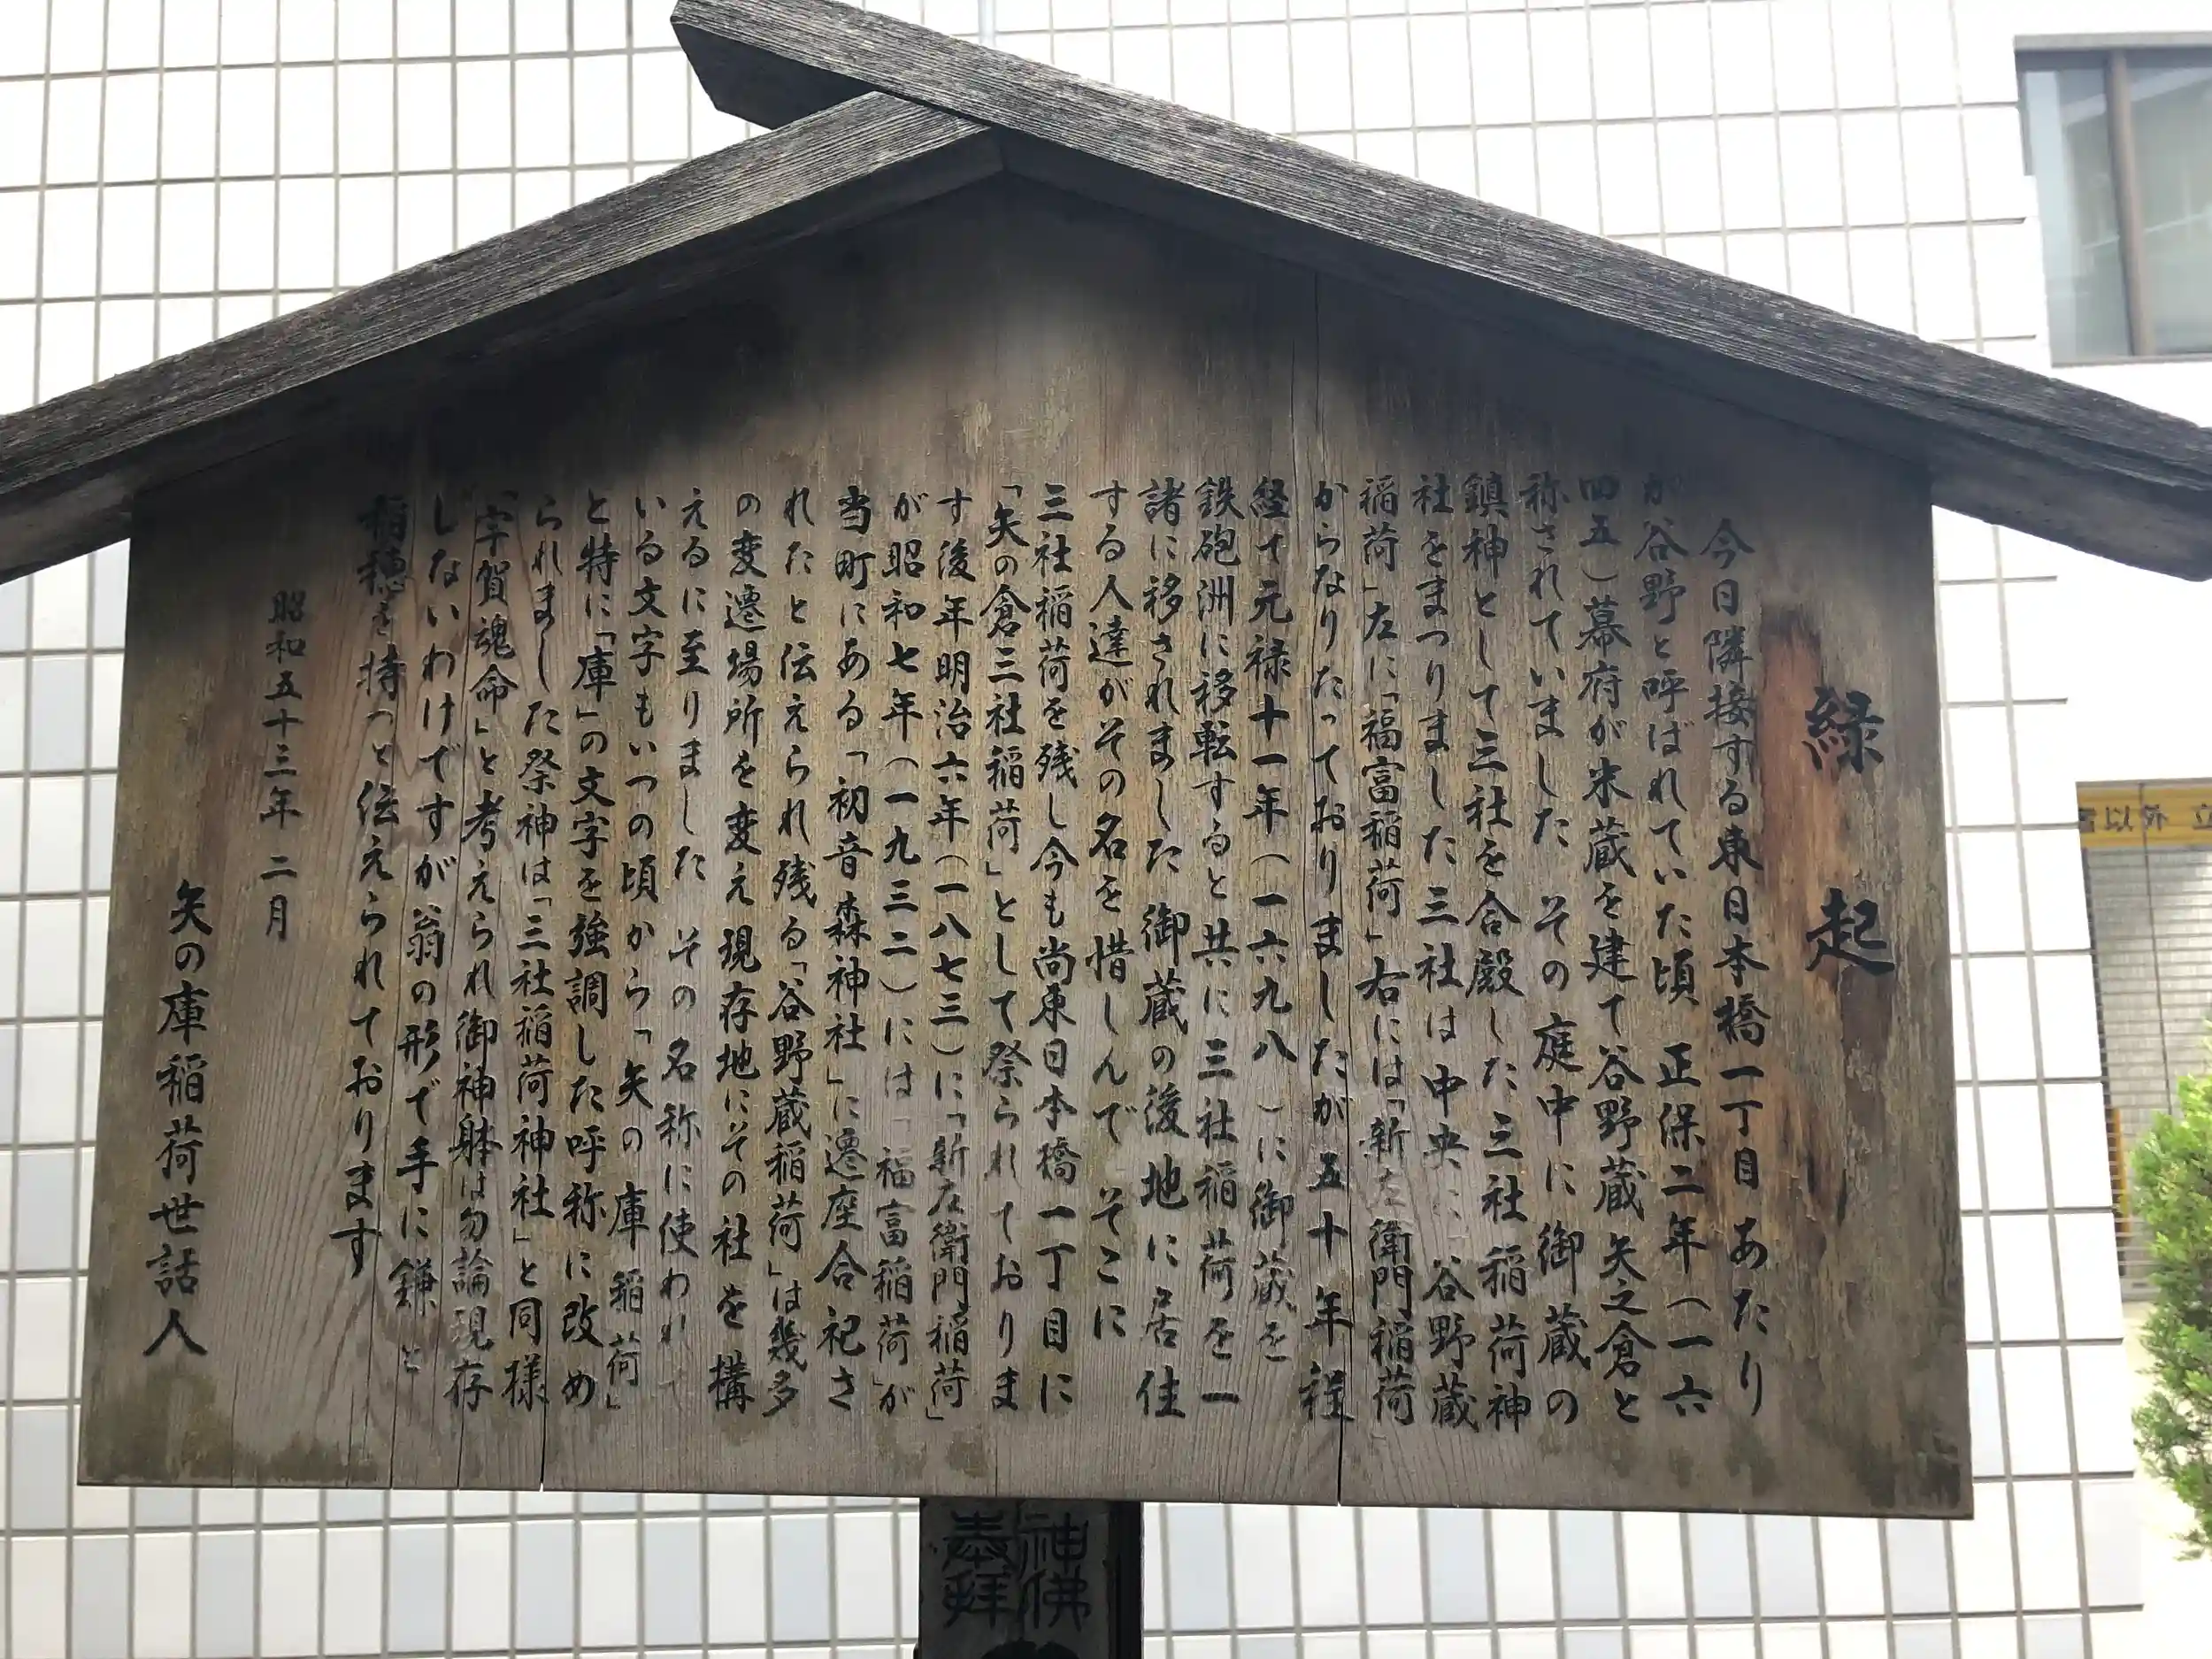 縁起
今日隣接する東日本橋一丁目あたり
が谷野と呼ばれていた頃 正保二年（一六
四五）幕府が米蔵を建て谷野蔵矢之倉と
称されていました その庭中に御蔵の
鎮神として三社を合殿した三社稲荷神
社をまつりました三社は中央に「谷野蔵
稲荷」左に「福富稲荷」右には「新左衛門稲荷」
からなりたっておりましたが五十年程
経て元禄十一年（一六九八）に御蔵を
鉄砲洲に移転すると共に三社稲荷を一
諸に移されました 御蔵の後地に居住
する人達がその名を惜しんで そこに
三社稲荷を残し今も尚東日本橋一丁目に
「矢の倉三社稲荷」として祭られておりま
す後年明治六年（一八七三）に「新左衛門稲荷」
が昭和七年（一九三二）には「福富稲荷」が
当町にある「初音森神社」に遷座合祀さ
れたと伝えられ残る「谷野蔵稲荷」は幾多
の変遷場所を変え現存地にその社を構
えるに至りました その名称に使われて
いる文字もいつの頃から「矢の庫稲荷」
と特に「庫」の文字を強調した呼称に改め
られました祭神は「三社稲荷神社」と同様
「宇賀魂命」と考えられ御神躰は勿論現存
しないわけですが翁の形で手に鎌と
稲穂を持つと伝えられております
昭和五十三年 二月
矢の庫稲荷世話人
神佛
奉拝
者以外 立